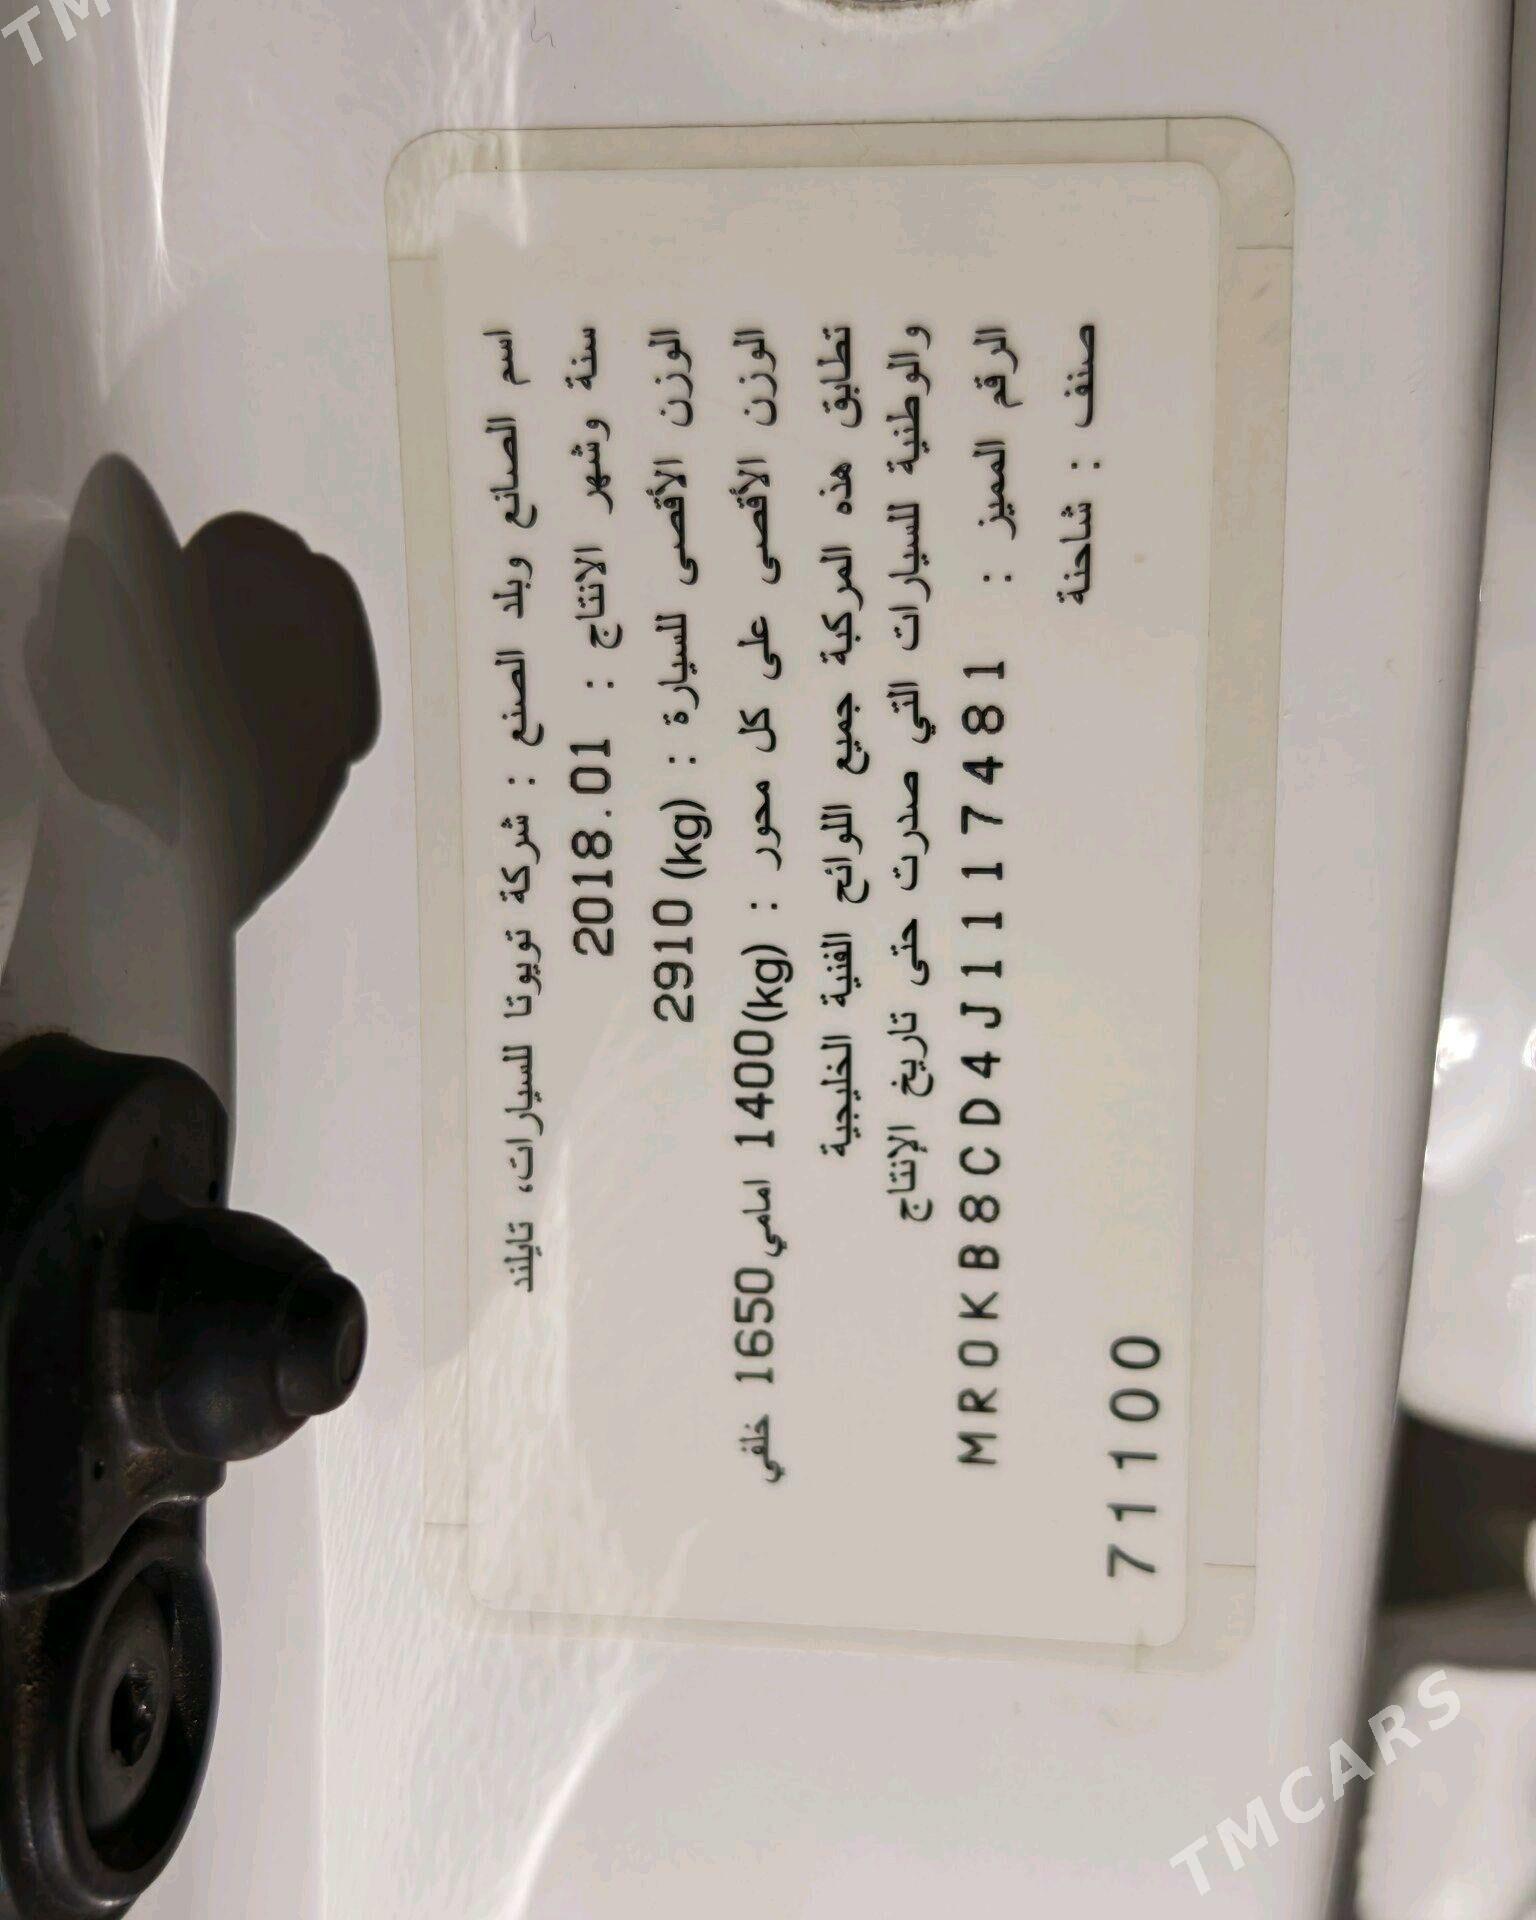 اسم الصانع وبلد الصنع : شركة تويوتا للسيارات، تايلند
سنة وشهر الانتاج : 2018.01
الوزن الأقصى للسيارة : 2910 (kg)
الوزن الأقصى على كل محور : 1400(kg) امامي 1650 خلفي
تطابق هذه المركبة جميع اللوائح الفنية الخليجية
والوطنية للسيارات التي صدرت حتى تاريخ الإنتاج
الرقم المميز : MR0KB8CD4J1117481
صنف : شاحنة
71100
TMCARS
TM